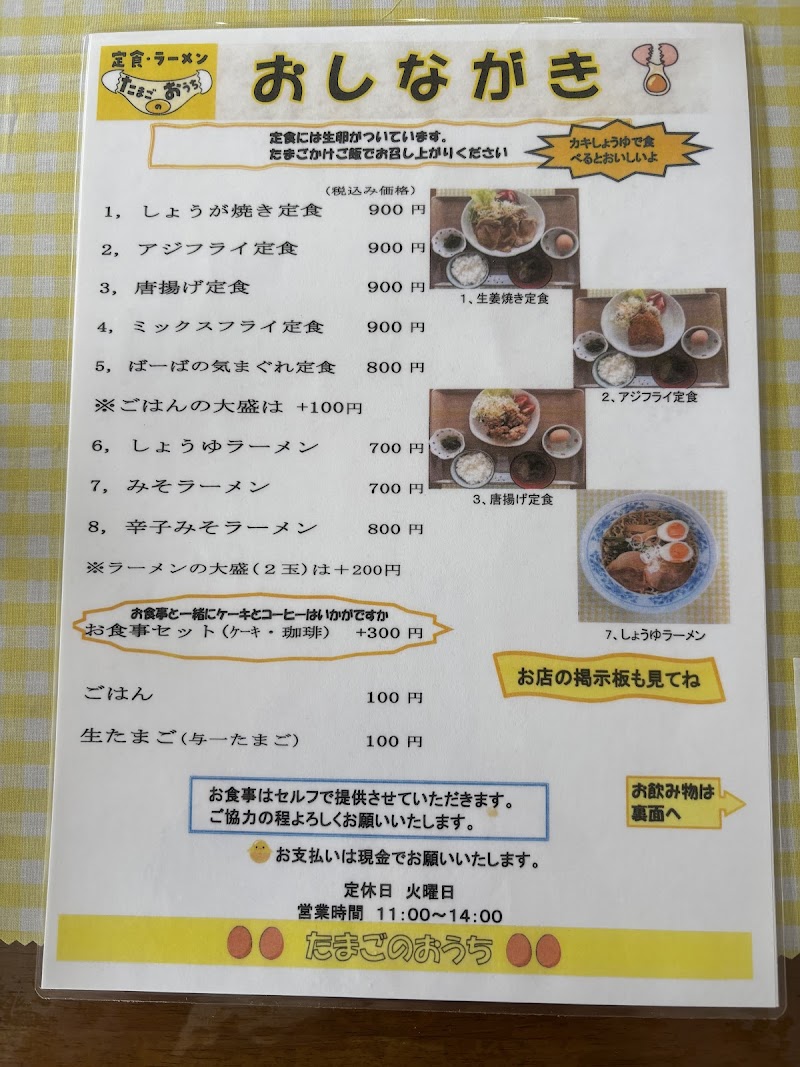 定食・ラーメン
たまごのおうち
おしながき
定食には生卵がついています。
たまごかけご飯でお召し上がりください
カキしょうゆで食
べるとおいしいよ
(税込み価格)
1, しょうが焼き定食 900 円
2, アジフライ定食 900 円
3, 唐揚げ定食 900 円
4, ミックスフライ定食 900 円
5, ばーばの気まぐれ定食 800 円
※ごはんの大盛は +100円
6, しょうゆラーメン 700 円
7, みそラーメン 700 円
8, 辛子みそラーメン 800 円
※ラーメンの大盛(2玉)は+200円
1、生姜焼き定食
2、アジフライ定食
3、唐揚げ定食
7、しょうゆラーメン
お食事と一緒にケーキとコーヒーはいかがですか
お食事セット(ｹｰｷ・珈琲) +300 円
お店の掲示板も見てね
ごはん 100 円
生たまご(与一たまご) 100 円
お食事はセルフで提供させていただきます。
ご協力の程よろしくお願いいたします。
お飲み物は
裏面へ
お支払いは現金でお願いいたします。
定休日 火曜日
営業時間 11:00～14:00
たまごのおうち